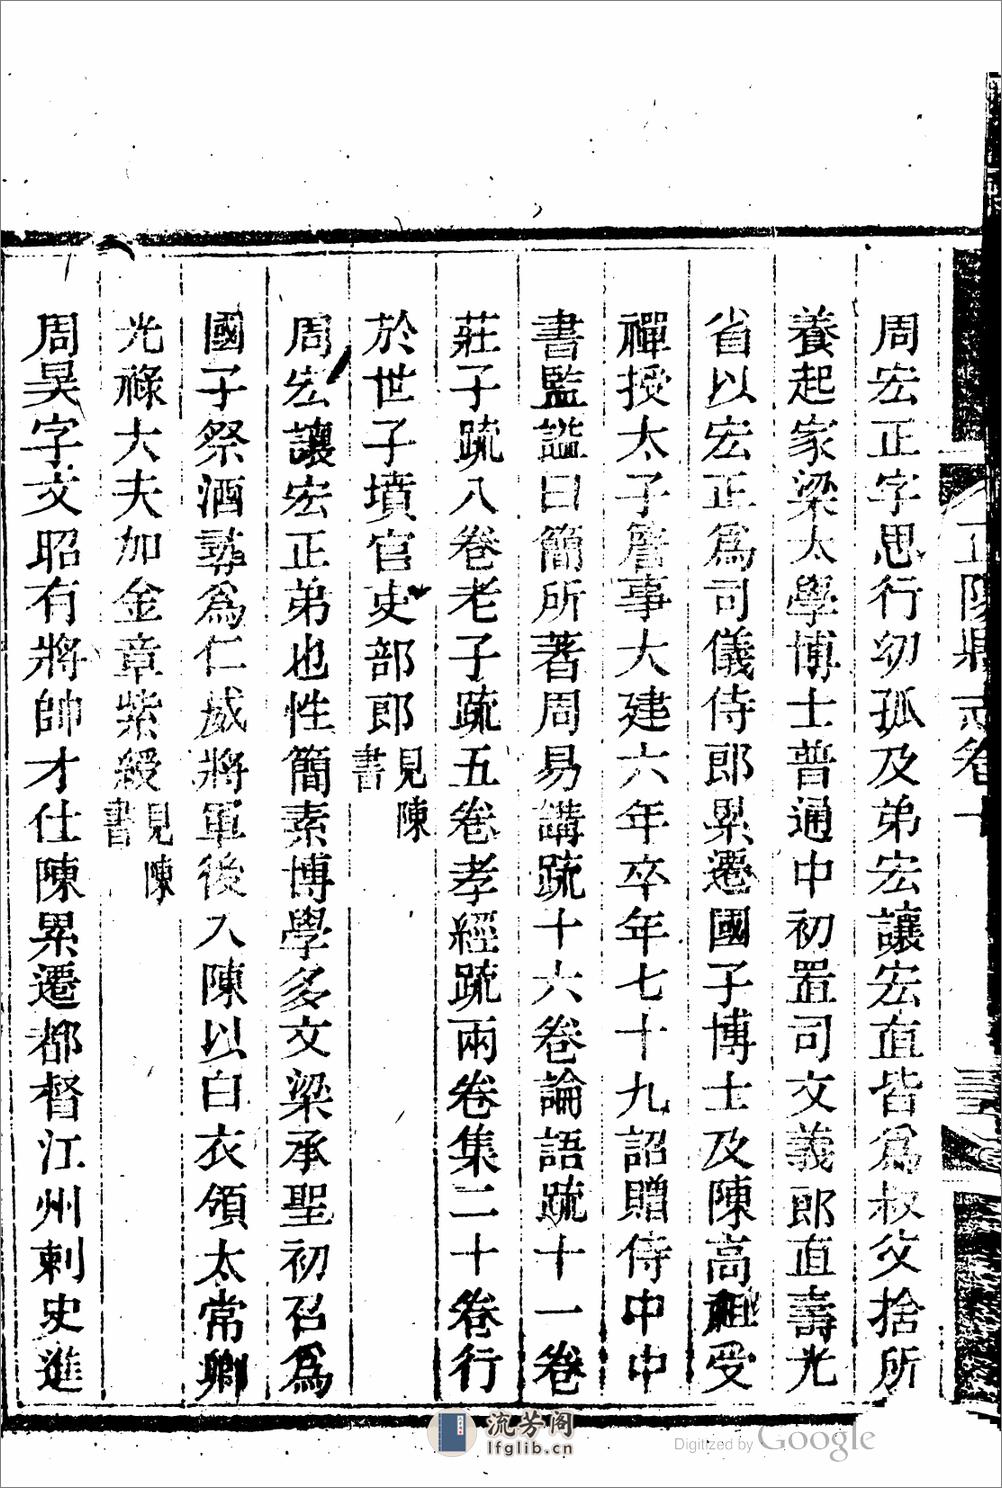 正陽縣志卷十
周宏正字思行幼孤及弟宏讓宏直皆為叔父捨所
養起家梁太學博士普通中初置司文義郎直壽光
省以宏正為司儀侍郎累遷國子博士及陳高祖受
禪授太子詹事大建六年卒年七十九詔贈侍中中
書監諡曰簡所著周易講疏十六卷論語疏十一卷
莊子疏八卷老子疏五卷孝經疏兩卷集二十卷行
於世子墳官吏部郎見陳書
周宏讓宏正弟也性簡素博學多文梁承聖初召為
國子祭酒尋為仁威將軍後入陳以白衣領太常卿
光祿大夫加金章紫綬見陳書
周炅字文昭有將帥才仕陳累遷都督江州刺史進
流芳阁
lfglib.cn
Digitized by Google